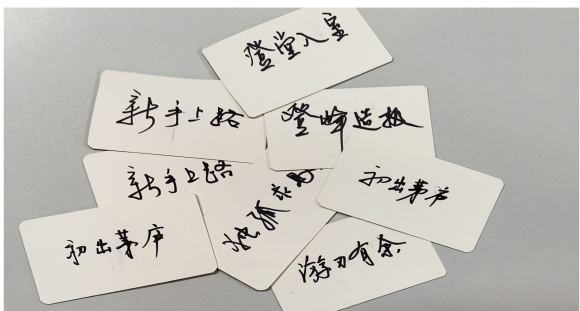 登堂入室
新手上路
登峰造极
新手上路
初出茅庐
初出茅庐
游刃有余